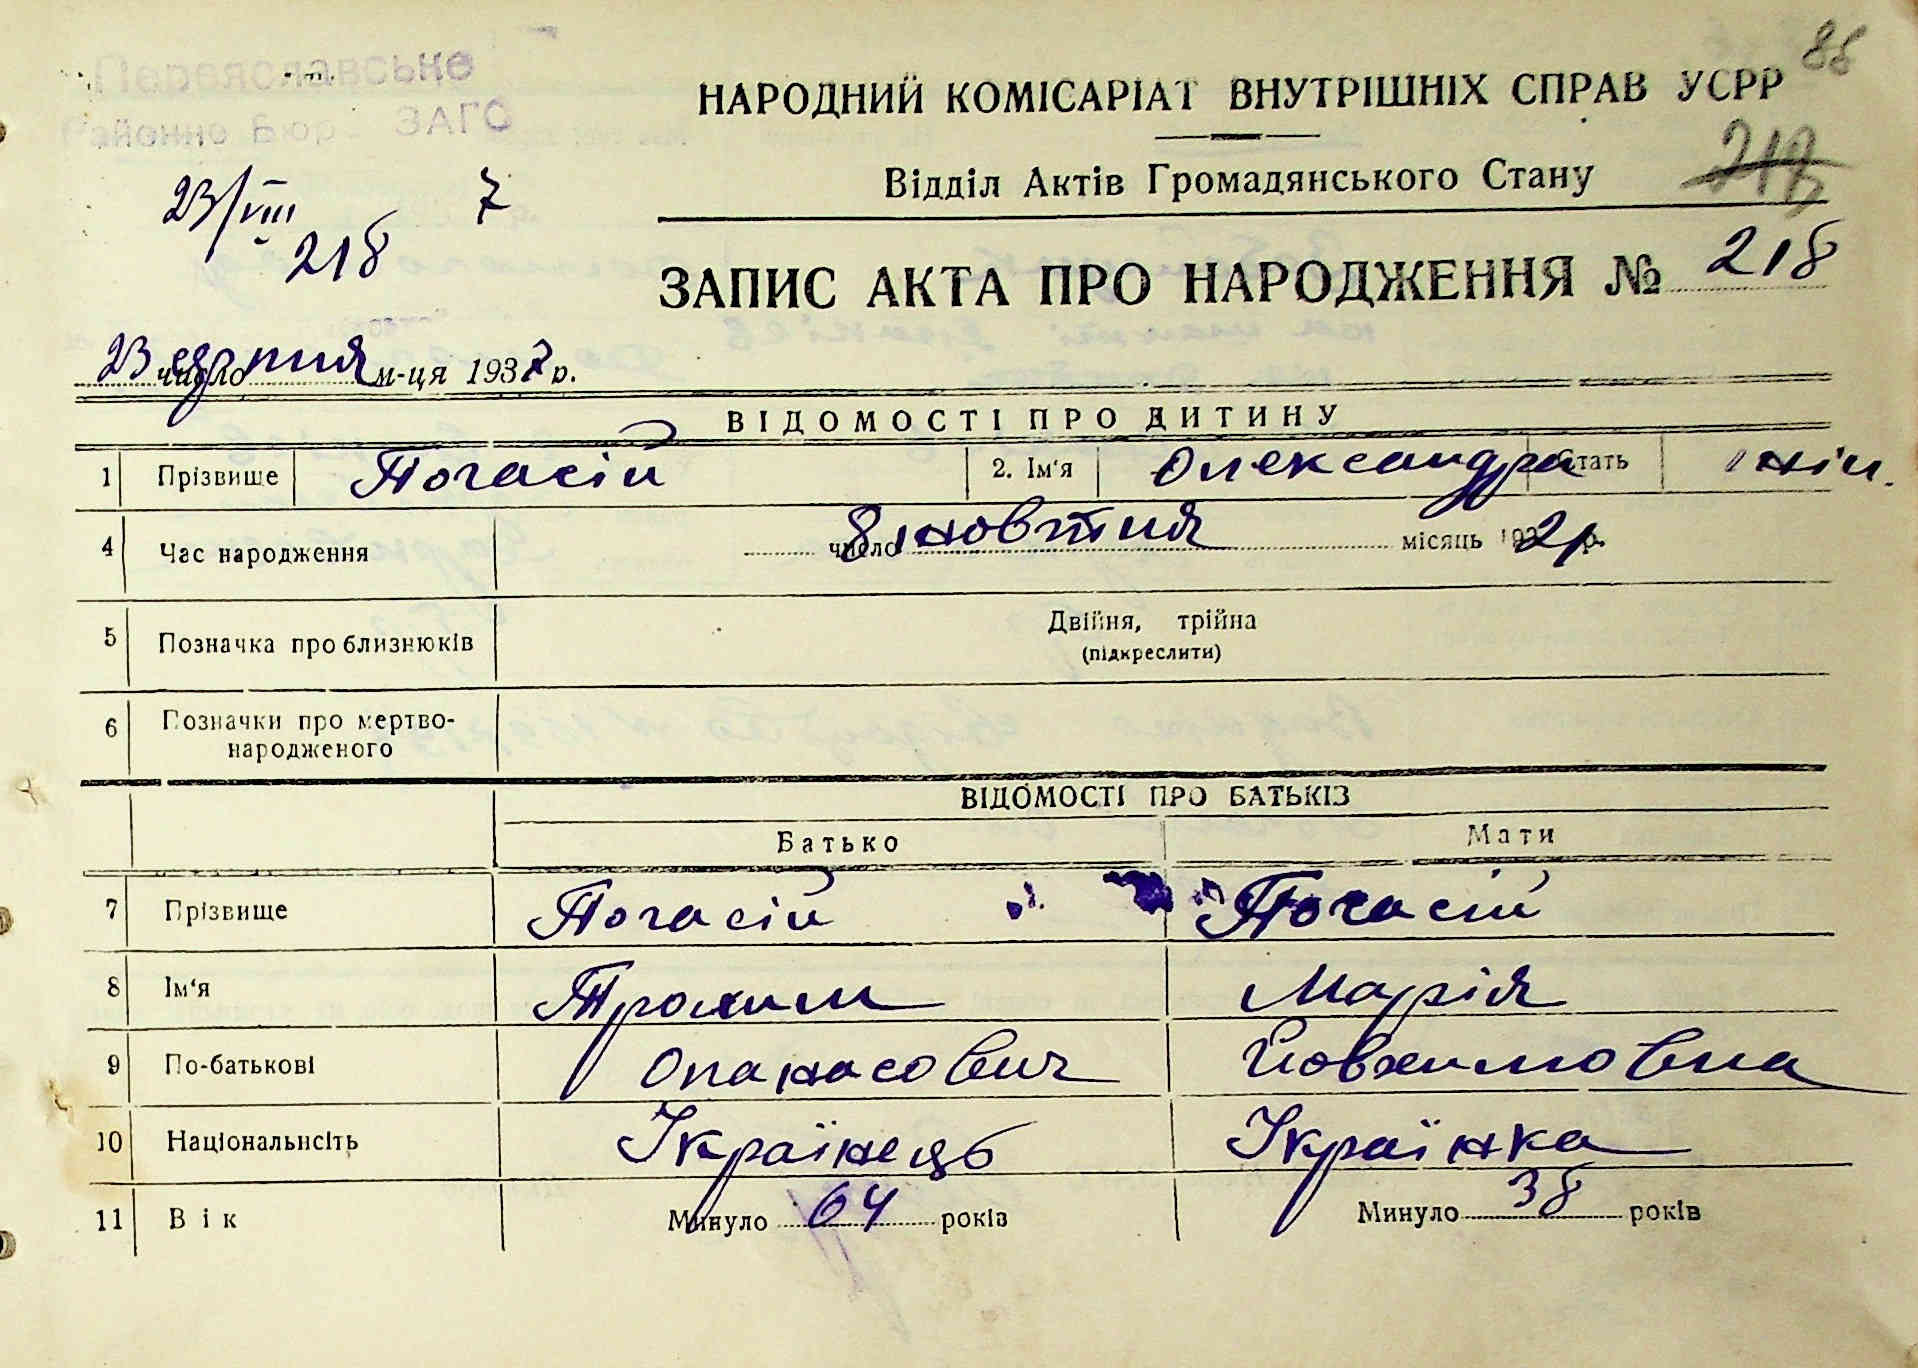 Переяславське
88
Районне Бюро ЗАГС
НАРОДНИЙ КОМІСАРІАТ ВНУТРІШНІХ СПРАВ УСРР
Відділ Актів Громадянського Стану
23/VIII 7
218
ЗАПИС АКТА ПРО НАРОДЖЕННЯ № 218
23 число серпня м-ця 1937 р.
ВІДОМОСТІ ПРО ДИТИНУ
1 Прізвище Погасій 2. Ім‘я Олександра Стать жін.
4 Час народження 8 число жовтня місяць 1932 р.
5 Позначка про близнюків Двійня, трійна
(підкреслити)
6 Позначки про мертво-
народженого
ВІДОМОСТІ ПРО БАТЬКІЗ
Батько Мати
7 Прізвище Погасій Погасій
8 Ім‘я Трохим Марія
9 По-батькові Опанасович Йовхимовна
10 Національнсіть Українець Українка
11 Вік Минуло 64 років Минуло 38 років